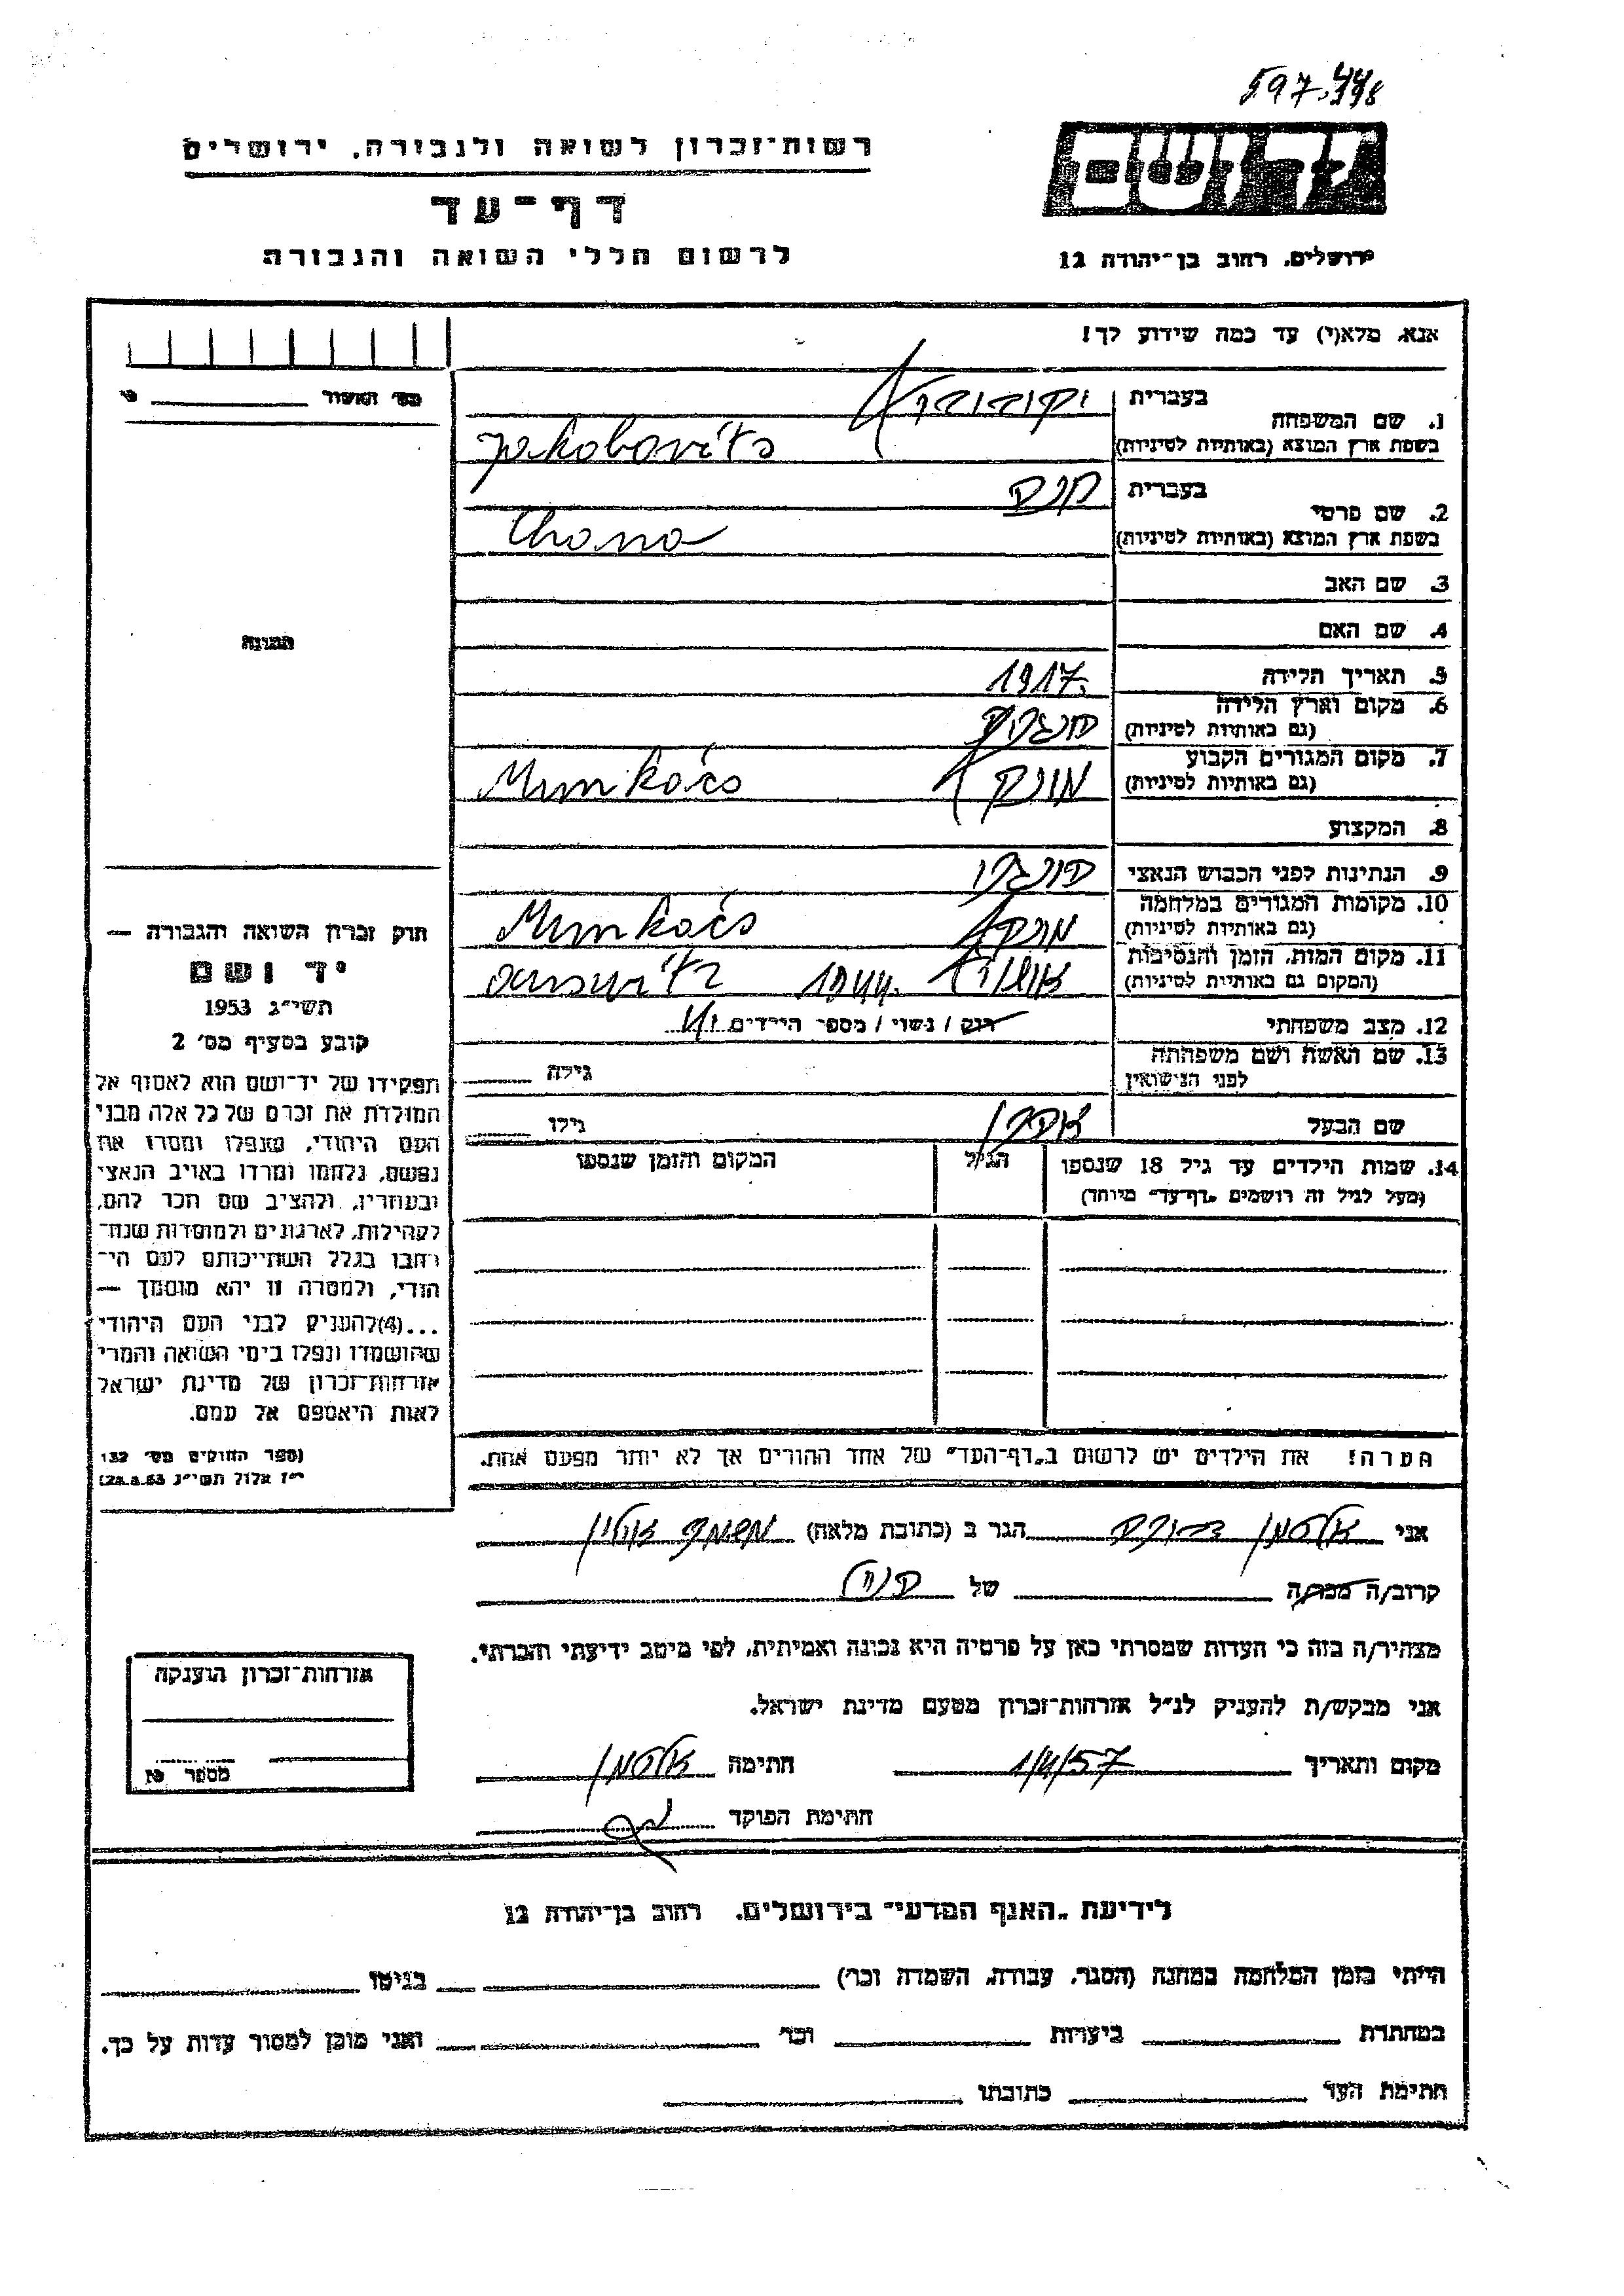 597.448
רשות־זכרון לשואה ולגבורה, ירושלים
דף־עד
לרשום חללי השואה והגבורה
יד ושם
ירושלים, רחוב בן־יהודה 12
אנא, מלא(י) עד כמה שידוע לך!
מס׳ האשור
1. שם המשפחה
בעברית
יקובוביץ
בשפת ארץ המוצא (באותיות לטיניות)
Jakobovits
2. שם פרטי
בעברית
חנה
בשפת ארץ המוצא (באותיות לטיניות)
Chana
3. שם האב
4. שם האם
תמונה
5. תאריך הלידה
1917.
6. מקום וארץ הלידה
(גם באותיות לטיניות)
הונגריה
7. מקום המגורים הקבוע
(גם באותיות לטיניות)
מונקץ Munkács
8. המקצוע
9. הנתינות לפני הכבוש הנאצי
הונגרי
10. מקומות המגורים במלחמה
(גם באותיות לטיניות)
Munkács
11. מקום המות, הזמן והנסיבות
(המקום גם באותיות לטיניות)
1944.
12. מצב משפחתי
רוק / נשוי / מספר הילדים
13. שם האשה ושם משפחתה
לפני הנישואין
גילה
שם הבעל
גילו
14. שמות הילדים עד גיל 18 שנספו
(מעל לגיל זה רושמים „דף־עד״ מיוחד)
הגיל
המקום והזמן שנספו
חוק זכרון השואה והגבורה —
יד ושם
תשי״ג 1953
קובע בסעיף מס׳ 2
תפקידו של יד־ושם הוא לאסוף אל
המולדת את זכרם של כל אלה מבני
העם היהודי, שנפלו ומסרו את
נפשם, נלחמו ומרדו באויב הנאצי
ובעוזריו, ולהציב שם וזכר להם,
לקהילות, לארגונים ולמוסדות שנח־
רבו בגלל השתייכותם לעם הי־
הודי, ולמטרה זו יהא מוסמך —
...(4)להעניק לבני העם היהודי
שהושמדו ונפלו בימי השואה והמרי
אזרחות־זכרון של מדינת ישראל
לאות היאספם אל עמם.
(ספר החוקים מס׳ 132
י״ז אלול תשי״ג 28.8.53)
הערה! את הילדים יש לרשום ב„דף־העד״ של אחד ההורים אך לא יותר מפעם אחת.
אני אלטמן הגר ב (כתובת מלאה)
קרוב/ה מכר/ה של
מצהיר/ה בזה כי העדות שמסרתי כאן על פרטיה היא נכונה ואמיתית, לפי מיטב ידיעתי והכרתי.
אני מבקש/ת להעניק לנ״ל אזרחות־זכרון מטעם מדינת ישראל.
מקום ותאריך 1/4/57 חתימה אלטמן
חתימת הפוקד
אזרחות־זכרון הוענקה
מספר
לידיעת „האגף המדעי״ בירושלים, רחוב בן־יהודה 12
הייתי בזמן המלחמה במחנה (הסגר, עבודה, השמדה וכו׳) בגיטו
במחתרת ביערות וכו׳ ואני מוכן למסור עדות על כך.
חתימת העד כתובתו